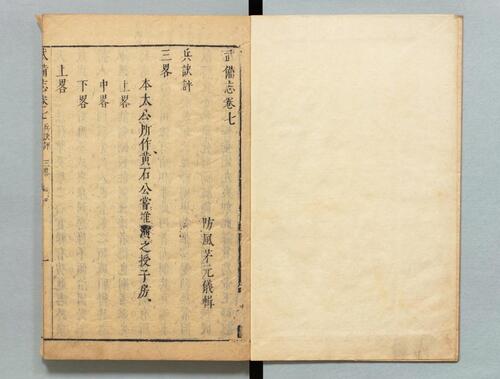 武備志卷七
防風茅元儀輯
兵訣評
三畧
本太公所作黃石公嘗推演之授子房、
上畧
中畧
下畧
上畧
武備志卷七 兵訣評 三畧 一